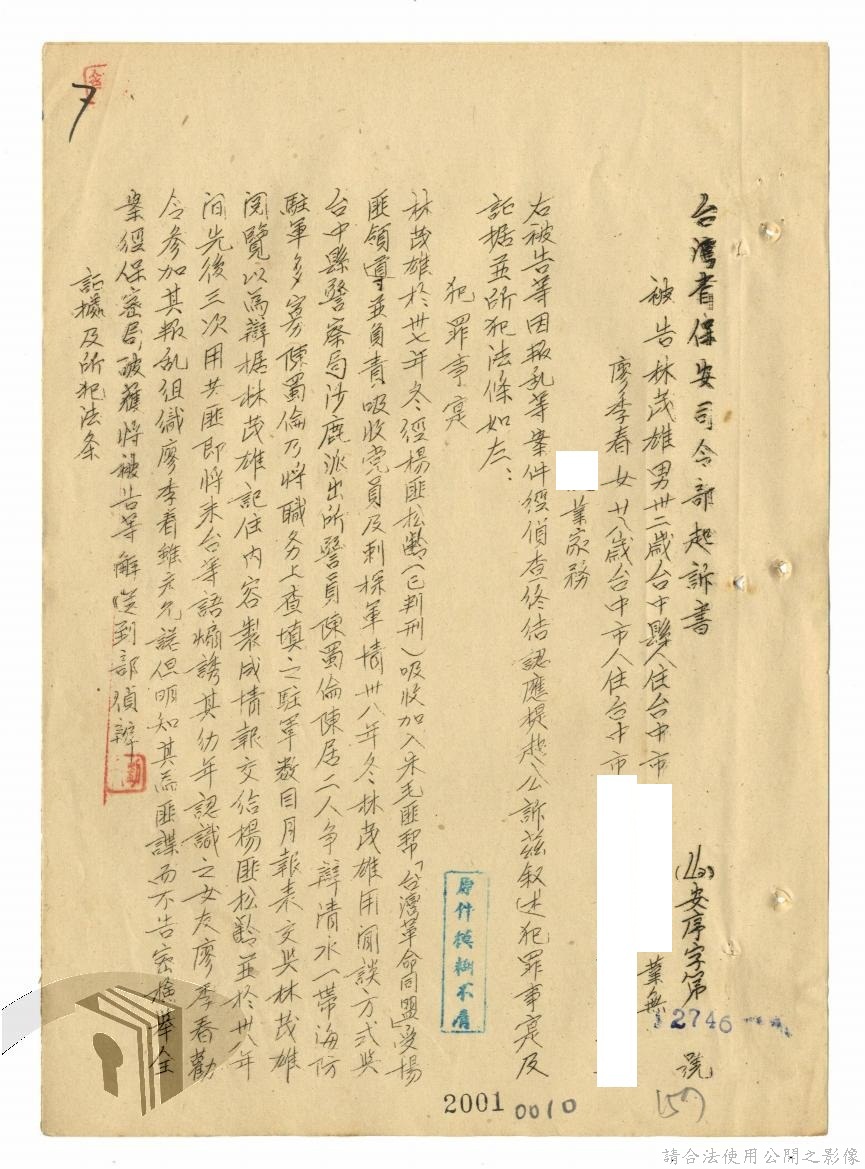 台灣省保安司令部起訴書
(40)安序字第 2746 號
被告林茂雄男卅二歲台中縣人住台中市 業無
廖季春女廿八歲台中市人住台中市
業家務
右被告等因報亂等案件經偵查終結認應提起公訴茲敘述犯罪事實及
証据並所犯法條如左：
犯罪事實
林茂雄於卅七年冬經楊匪松齡(已判刑)吸收加入朱毛匪幫「台灣革命同盟」受楊
匪領導並負責吸收党員及刺探軍情卅八年冬林茂雄用閒談方式與
台中縣警察局沙鹿派出所警員陳蜀倫陳居二人爭辯清水一帶海防
駐軍多寡陳蜀倫乃將職務上查填之駐軍数目月報表交與林茂雄
閱覽以為辯据林茂雄記住內容製成情報交給楊匪松齡並於卅八年
間先後三次用共匪即將來台等語煽誘其幼年認識之女友廖季春勸
令參加其报乱組織廖季春雖未允諾但明知其為匪諜而不告密檢舉全
案經保密局破獲將被告等解送到部偵辦
証據及所犯法条
原件模糊不清
7
2001
0010
請合法使用公開之影像